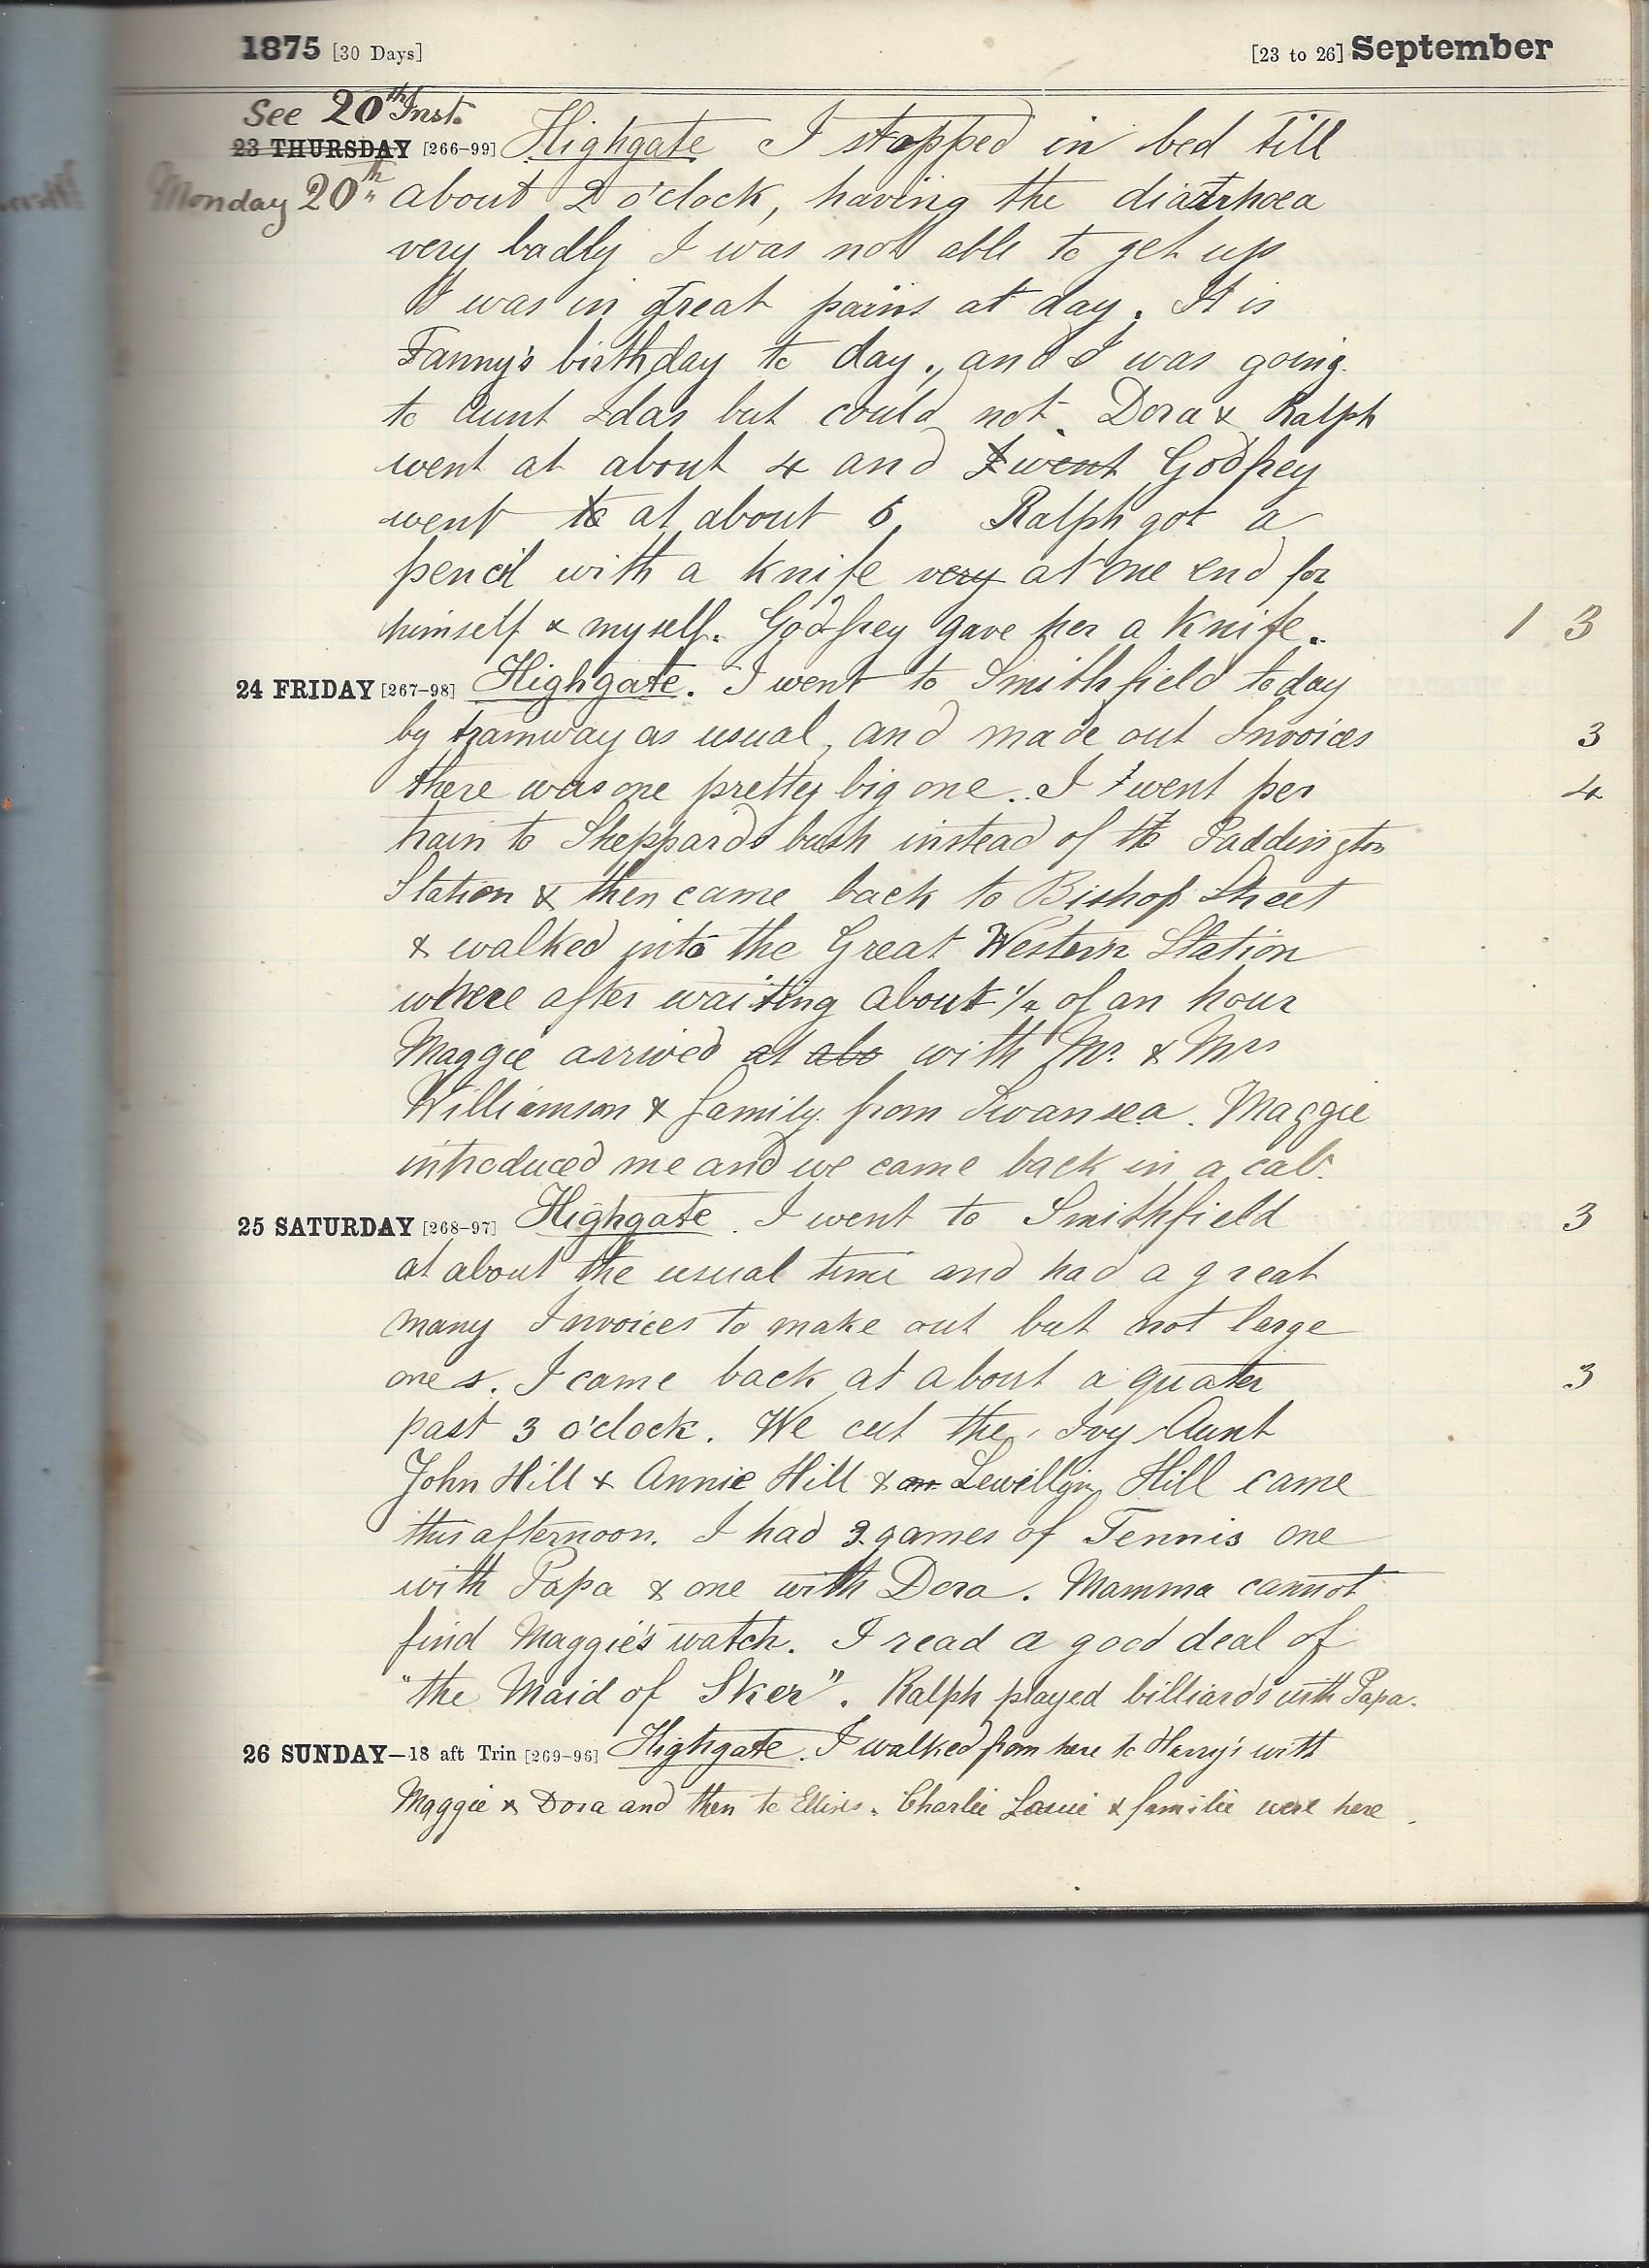 1875 [30 Days] [23 to 26] September
See 20th Inst.
23 THURSDAY [266-99] Highgate I stopped in bed till
Monday 20th about 2 o'clock, having the diarrhoea
very badly I was not able to get up
I was in great pains at day. It is
Fanny's birthday to day., and I was going.
to Aunt Idas but could not. Dora & Ralph
went at about 4 and I went Godfrey
went to at about 6. Ralph got a
pencil with a knife very at one end for
himself & myself. Godfrey gave her a Knife.. 1 3
24 FRIDAY [267-98] Highgate. I went to Smithfield today
by tramway as usual, and made out Invoices 3
there was one pretty big one.. I went per 4
train to Sheppards bush instead of to Paddington
Station & then came back to Bishop Street
& walked into the Great Western Station
where after waiting about 1/4 of an hour
Maggie arrived at abo with Mr. & Mrs
Williamson & family from Swansea. Maggie
introduced me and we came back in a cab.
25 SATURDAY [268-97] Highgate. I went to Smithfield 3
at about the usual time and had a great
many Invoices to make out but not large
ones. I came back at about a quater 3
past 3 o'clock. We cut the Ivy Aunt
John Hill & Annie Hill & an Lewillyn Hill came
this afternoon. I had 3 games of Tennis one
with Papa & one with Dora. Mamma cannot
find Maggie's watch. I read a good deal of
"the Maid of Sker". Ralph played billiards with Papa.
26 SUNDAY—18 aft Trin [269-96] Highgate. I walked from here to Harry's with
Maggie & Dora and then to Ellises. Charlie & familie were here.